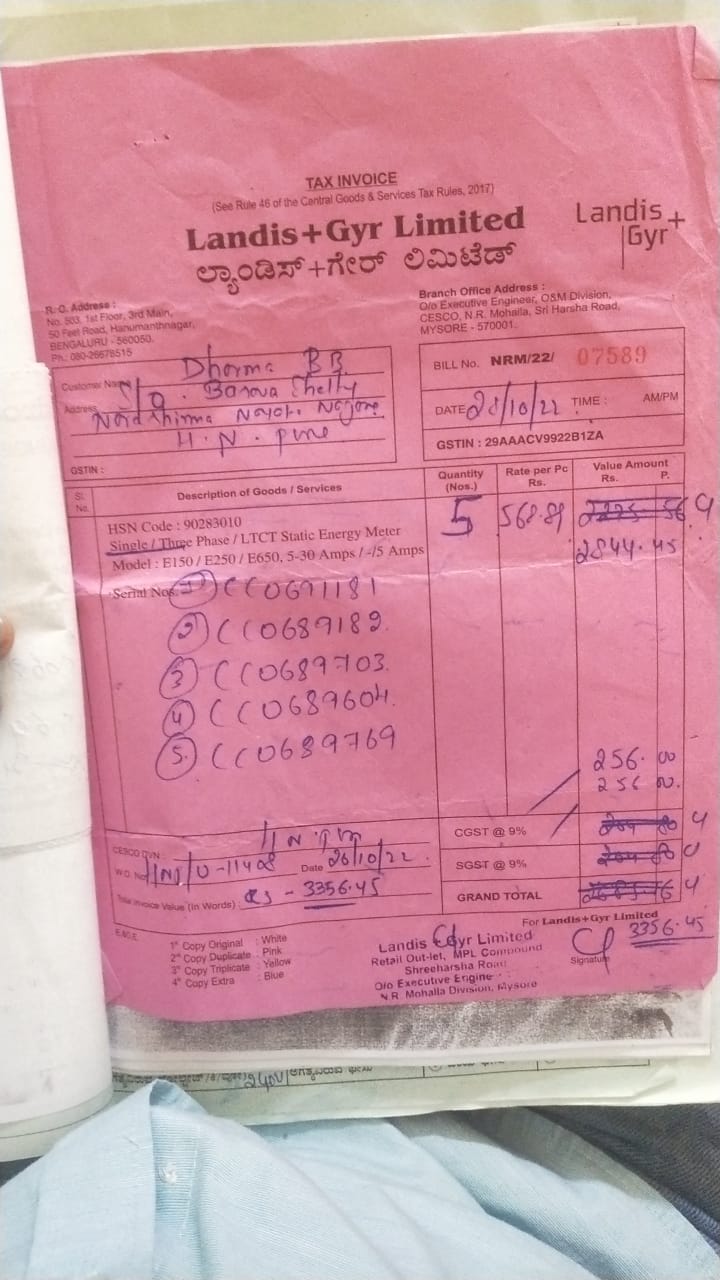 TAX INVOICE
(See Rule 46 of the Central Goods & Services Tax Rules, 2017)
Landis+Gyr Limited
ಲ್ಯಾಂಡಿಸ್+ಗೇರ್ ಲಿಮಿಟೆಡ್
Landis+
Gyr
R. O. Address :
No. 503, 1st Floor, 3rd Main,
50 Feet Road, Hanumanthnagar,
BENGALURU - 560050.
Ph.: 080-26678515
Branch Office Address :
O/o Executive Engineer, O&M Division,
CESCO, N.R. Mohalla, Sri Harsha Road,
MYSORE - 570001.
Customer Name Dharma BB
Address S/o . Basava Shetty
H.N. Pura
GSTIN :
BILL No. NRM/22/ 07589
DATE 28/10/22 TIME : AM/PM
GSTIN : 29AAACV9922B1ZA
Sl. No. Description of Goods / Services Quantity (Nos.) Rate per Pc Rs. Value Amount Rs. P.
HSN Code : 90283010
Single / Three Phase / LTCT Static Energy Meter
Model : E150 / E250 / E650, 5-30 Amps / -/5 Amps
5 568.89
2844.45
Serial Nos. 1) CC0691181
2) CC0689182.
3) CC0689703.
4) CC0689604.
5. CC0689769
256.00
256 00.
CGST @ 9%
SGST @ 9%
GRAND TOTAL
CESCO DVN :
W.O. No. HN/U-11408 Date 26/10/22.
Total Invoice Value (In Words) : Rs - 3356.45
E.&O.E.
1st Copy Original : White
2nd Copy Duplicate : Pink
3rd Copy Triplicate : Yellow
4th Copy Extra : Blue
For Landis+Gyr Limited
3356.45
Signature
Landis Gyr Limited
Retail Out-let, MPL Compound
Shreeharsha Road
O/o Executive Engine
N.R. Mohalla Division, Mysore